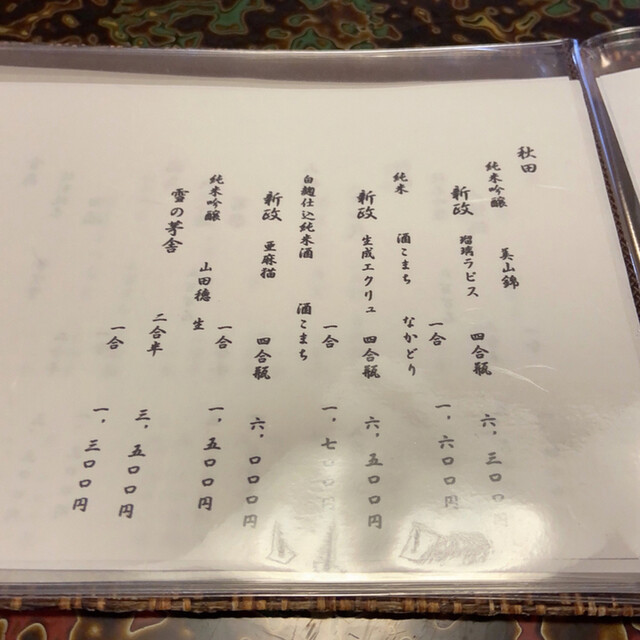 秋田
純米吟醸 美山錦
新政 瑠璃ラピス 四合瓶 六,三〇〇円
一合 一,六〇〇円
純米 酒こまち なかどり
新政 生成エクリュ 四合瓶 六,五〇〇円
一合 一,七〇〇円
白麹仕込純米酒 酒こまち
新政 亜麻猫 四合瓶 六,〇〇〇円
一合 一,五〇〇円
純米吟醸 山田穂 生
雪の茅舎 二合半 三,五〇〇円
一合 一,三〇〇円